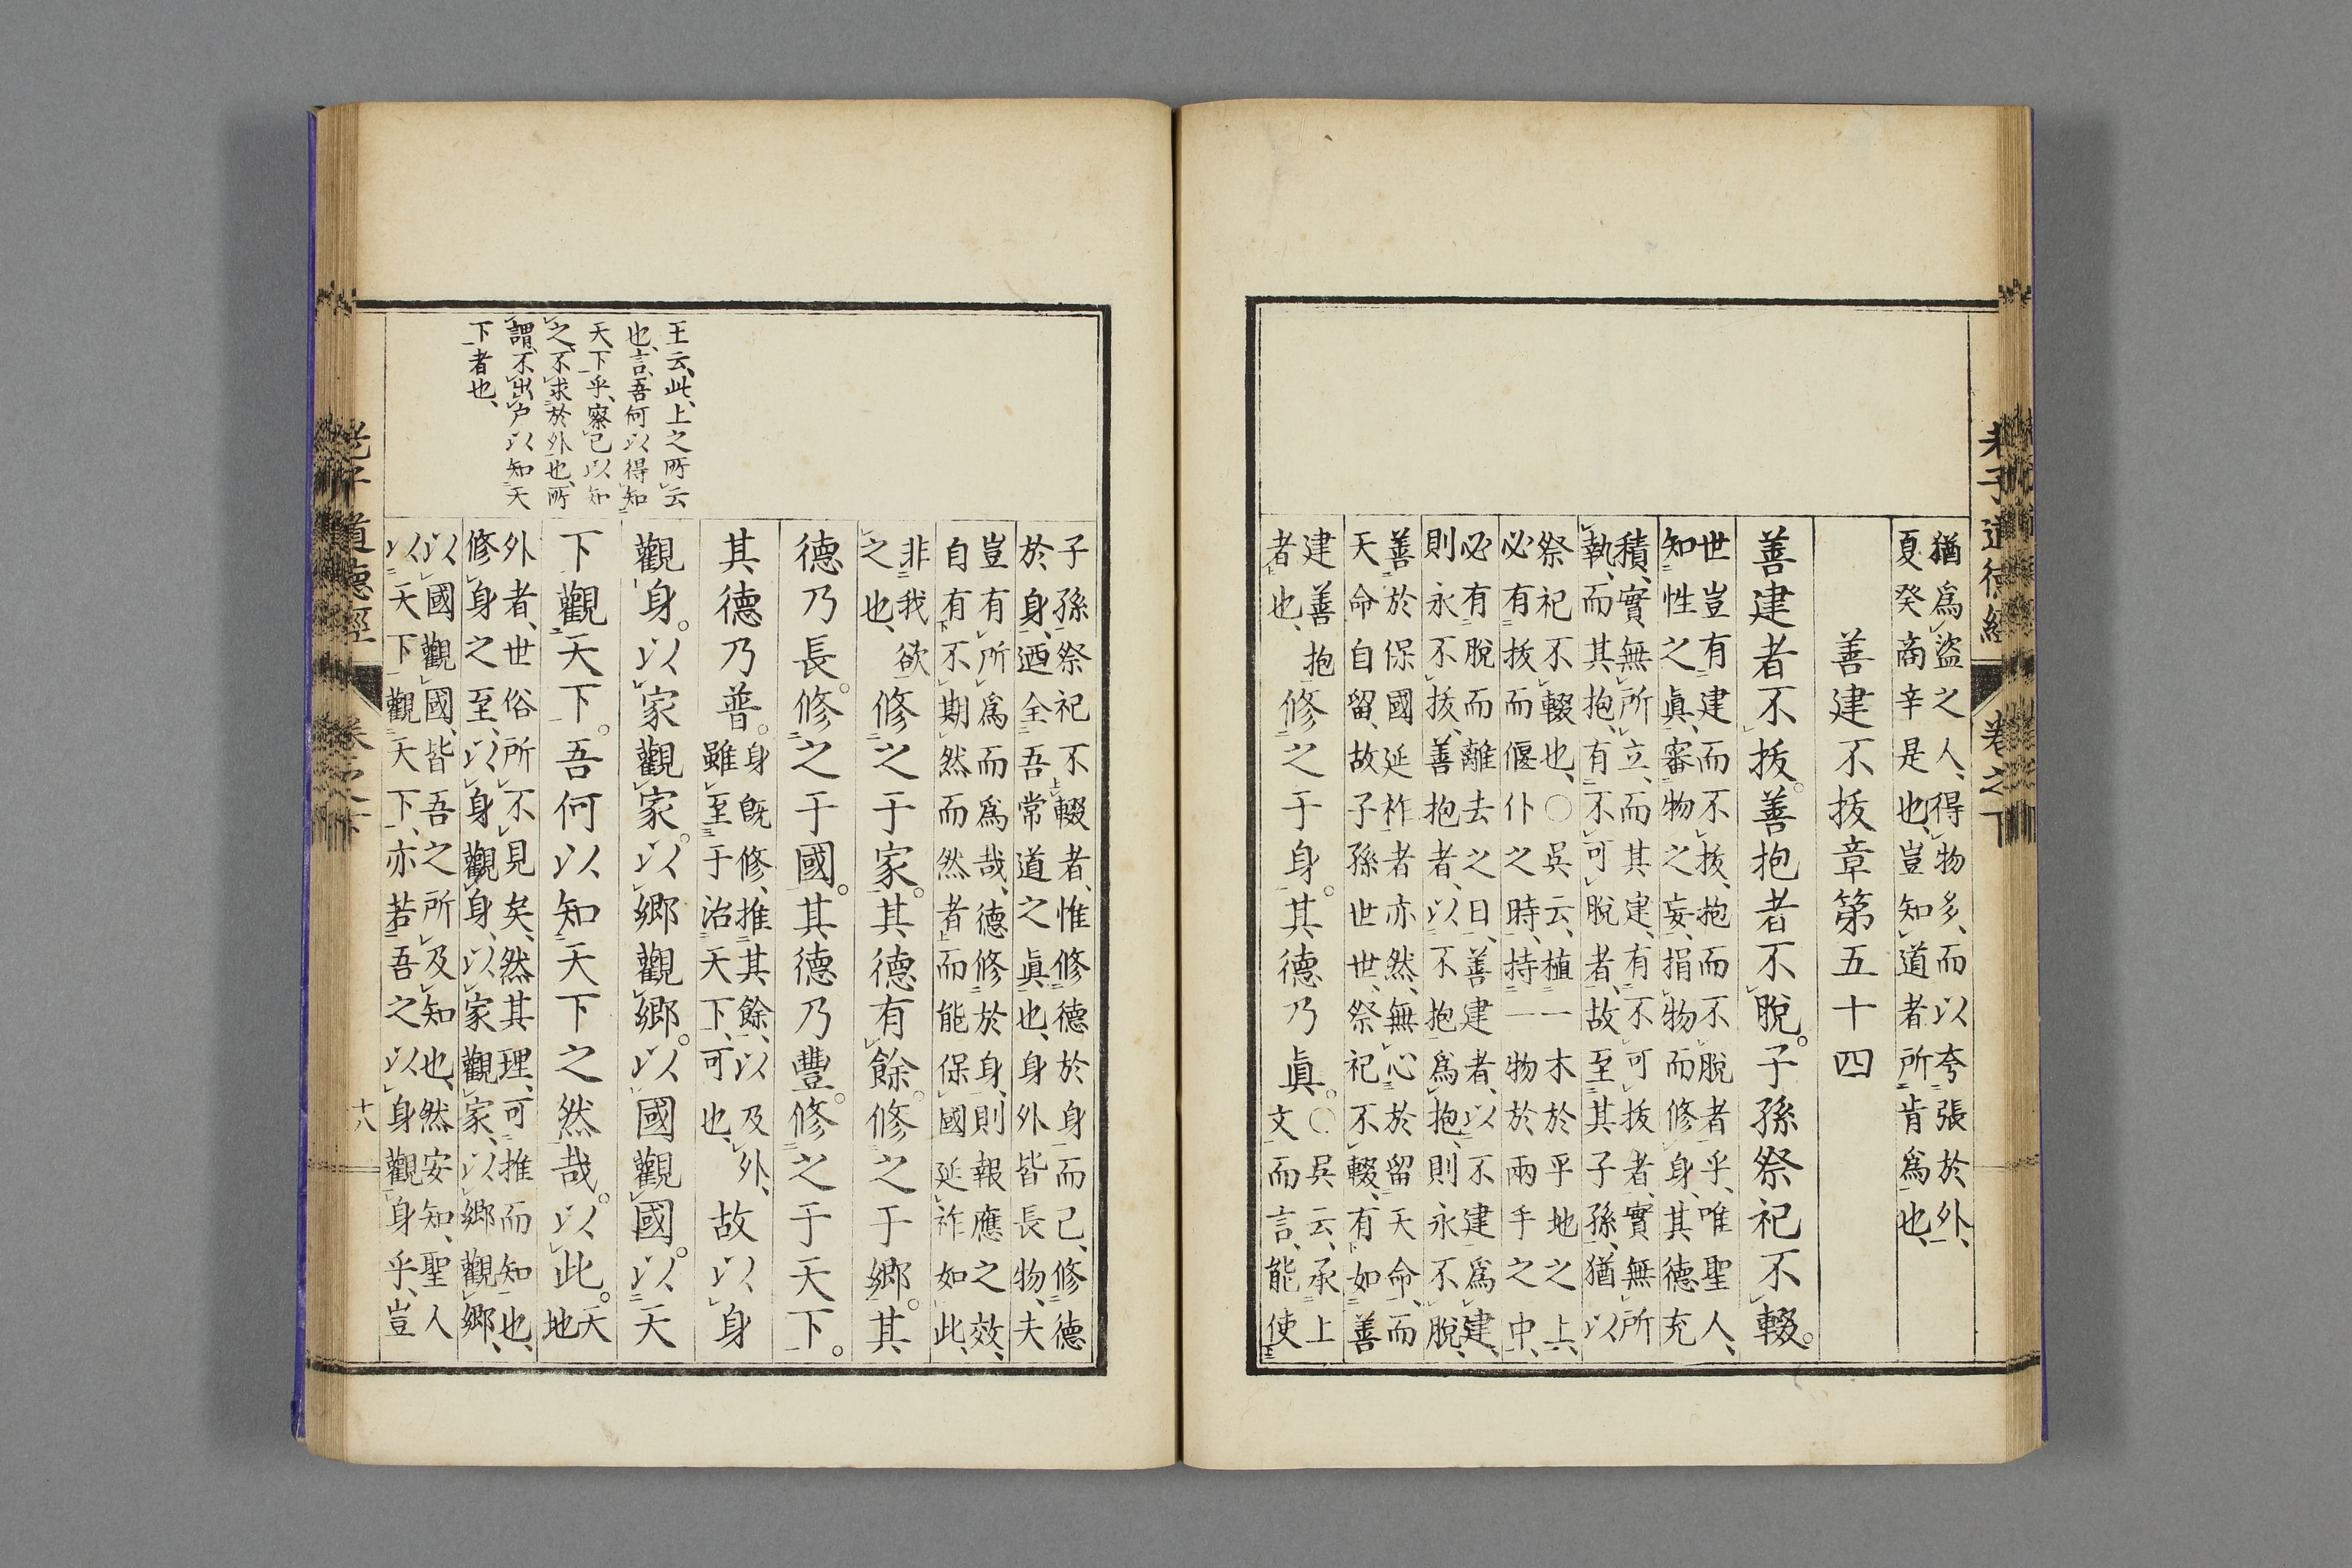 猶爲盜之人、得物多、而以夸張於外、
夏癸商辛是也、豈知道者所肯爲也、
善建不拔章第五十四
善建者不拔。善抱者不脫。子孫祭祀不輟。
世豈有建而不拔、抱而不脫者乎、唯聖人、
知性之眞、審物之妄、捐物而修身、其德充
積、實無所立、而其建有不可拔者、實無所
執、而其抱有不可脫者、故至其子孫、猶以
祭祀不輟也、○吳云、植一木於平地之上、
必有拔而偃仆之時、持一物於兩手之中、
必有脫而離去之日、善建者、以不建爲建、
則永不拔、善抱者、以不抱爲抱、則永不脫、
善於保國延祚者亦然、無心於留天命、而
天命自留、故子孫世世、祭祀不輟、有如善
建善抱
者也、
修之于身。其德乃眞。
○吳云、承上
文而言、能使
子孫祭祀不輟者、惟修德於身而已、修德
於身、迺全吾常道之眞也、身外皆長物、夫
豈有所爲而爲哉、德修於身、則報應之效、
自有不期然而然者、而能保國延祚如此、
非我欲
之也、
修之于家。其德有餘。修之于鄉。其
德乃長。修之于國。其德乃豐。修之于天下。
其德乃普。
身旣修、推其餘、以及外、
雖至于治天下、可也、
故以身
觀身。以家觀家。以鄉觀鄉。以國觀國。以天
下觀天下。吾何以知天下之然哉。以此。
天
地
外者、世俗所不見矣、然其理、可推而知也、
修身之至、以身觀身、以家觀家、以鄉觀鄉、
以國觀國、皆吾之所及知也、然安知、聖人
以天下觀天下、亦若吾之以身觀身乎、豈
王云、此、上之所云
也、言、吾何以得知
天下乎、察己以知
之、不求於外也、所
謂、不出戶以知天
下者也、
老子道德經
卷之下
十八